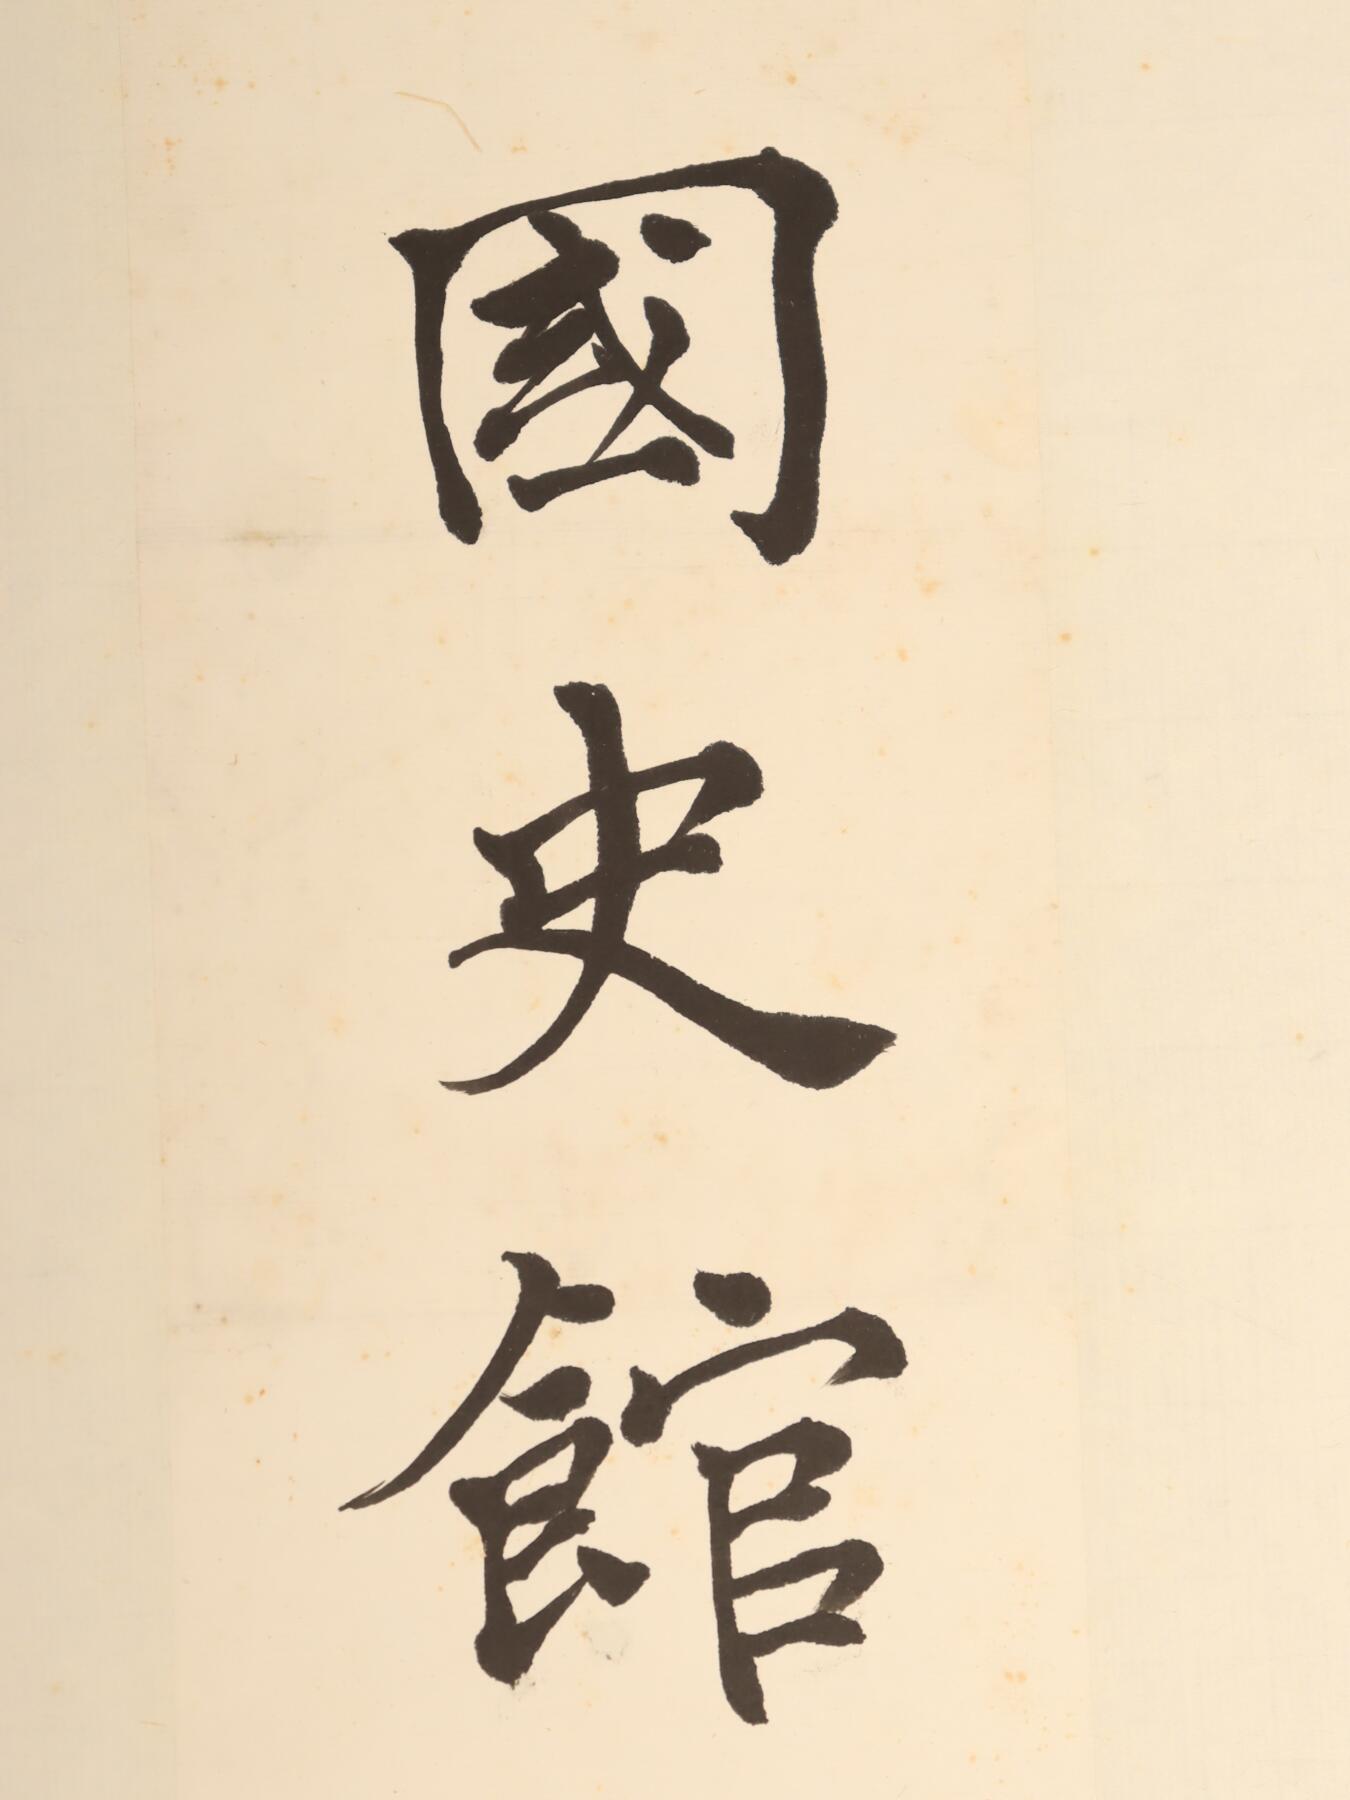 國史館